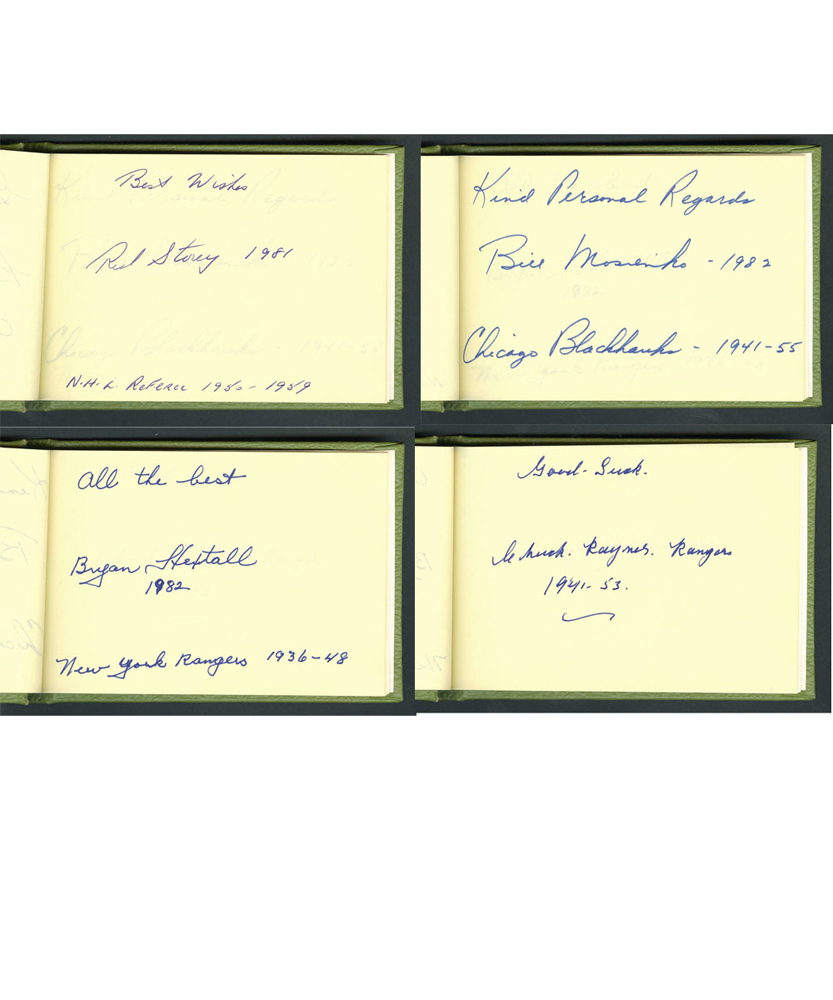 Best Wishes
Red Storey 1981
N.H.L. Referee 1950-1959
Kind Personal Regards
Bill Mosienko - 1982
Chicago Blackhawks - 1941-55
All the best
Bryan Hextall
1982
New York Rangers 1936-48
Good-Luck.
Chuck. Rayner. Rangers
1941-53.